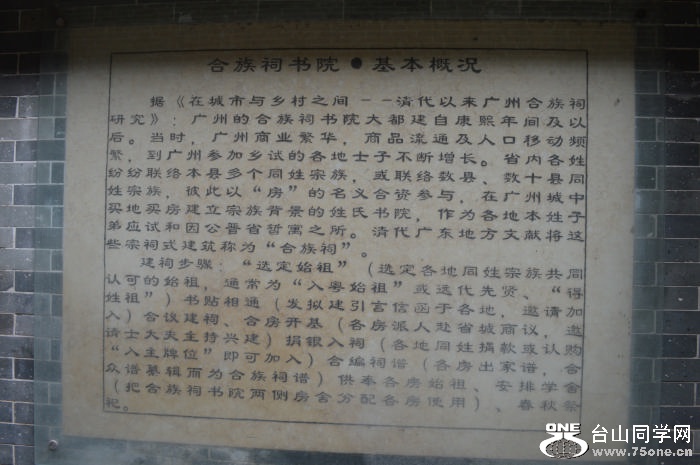 合族祠书院●基本概况
据《在城市与乡村之间——清代以来广州合族祠
研究》：广州的合族祠书院大都建自康熙年间及以
后。当时，广州商业繁华，商品流通及人口移动频
繁，到广州参加乡试的各地士子不断增长。省内各姓
纷纷联络本县多个同姓宗族，或联络数县、数十县同
姓宗族，彼此以“房”的名义合资参与，在广州城中
买地买房建立宗族背景的姓氏书院，作为各地本姓子
弟应试和因公晋省暂寓之所。清代广东地方文献将这
些宗祠式建筑称为“合族祠”。
建祠步骤：“选定始祖”（选定各地同姓宗族共同
认可的始祖，通常为“入粤始祖”或远代先贤、“得
姓祖”）书贴相通（发拟建引言信函于各地，邀请加
入）合议建祠、合房开基（各房派人赴省城商议，邀
请士大夫主持兴建）捐银入祠（各地同姓捐款或认购
“入主牌位”即可加入）合编祠谱（各房出家谱，合
众谱纂辑而为合族祠谱）供奉各房始祖、安排学舍
（把合族祠书院两侧房舍分配各房使用）、春秋祭
祀。
ONE
台山同学网
www.75one.cn